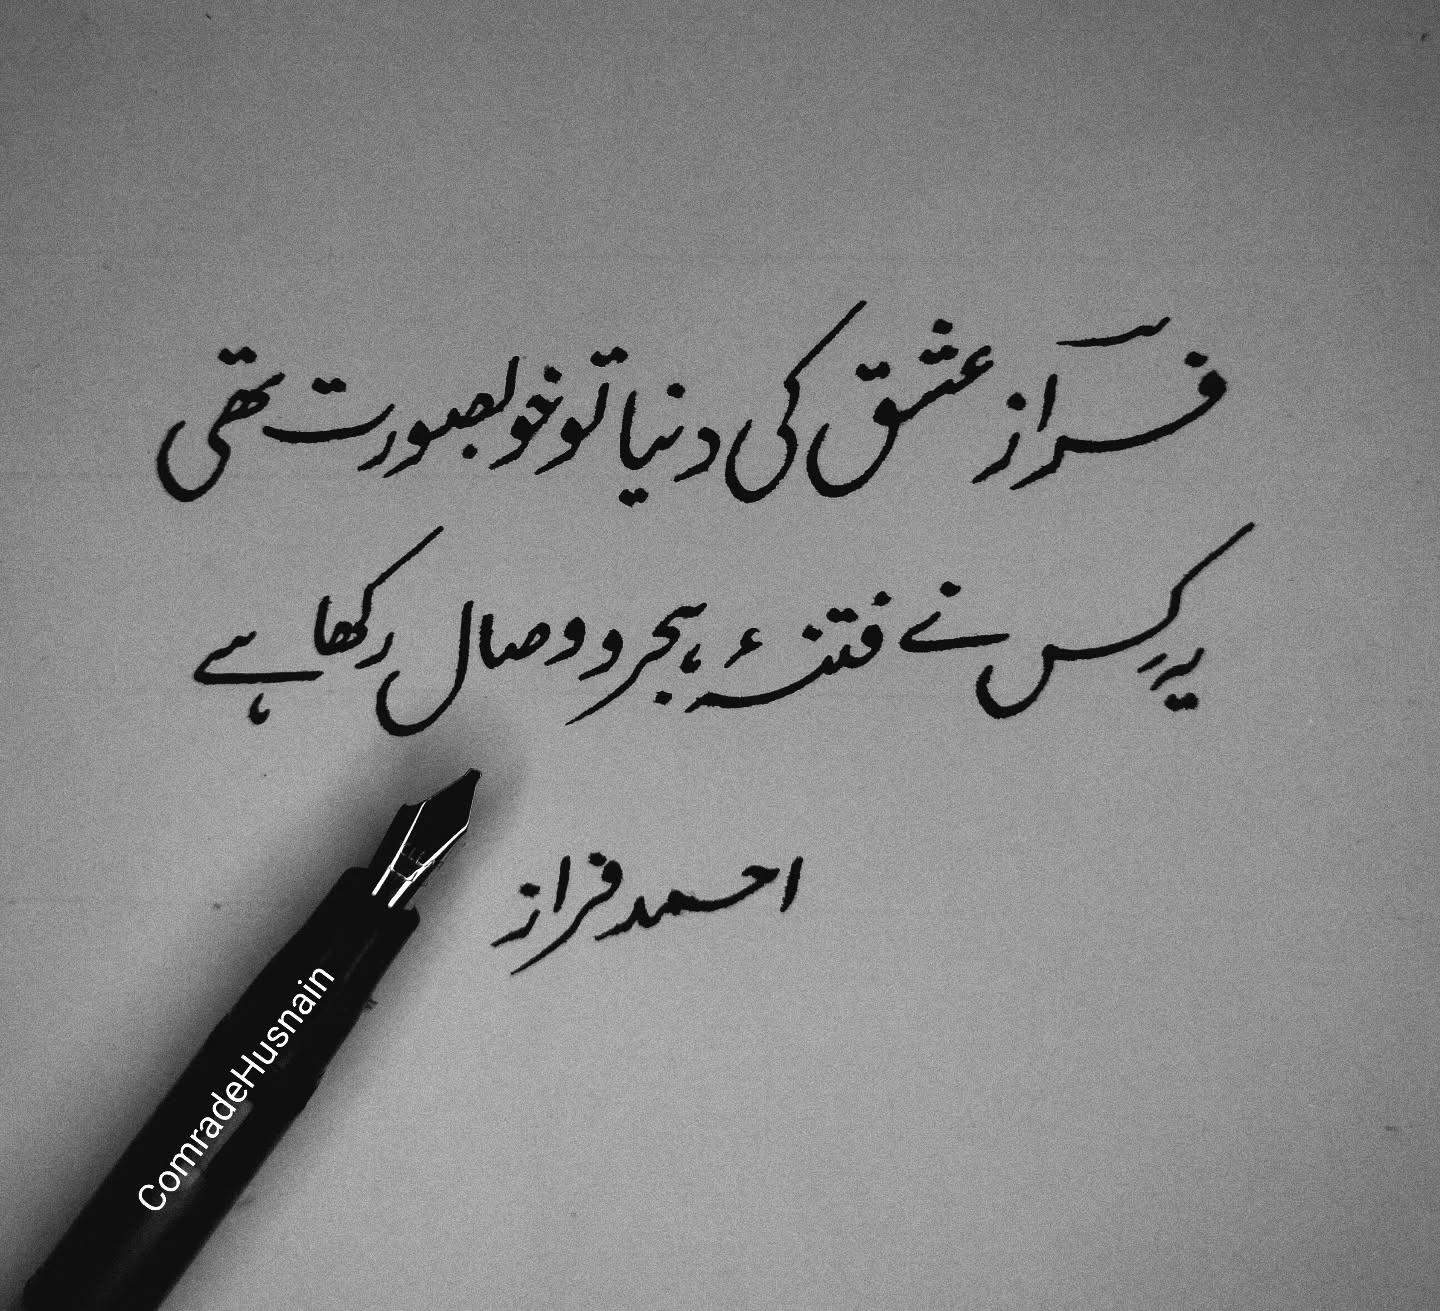 فرازؔ عشق کی دنیا تو خوبصورت تھی
یہ کِس نے فتنۂ ہجر و وصال رکھا ہے
احمد فراز
ComradeHusnain